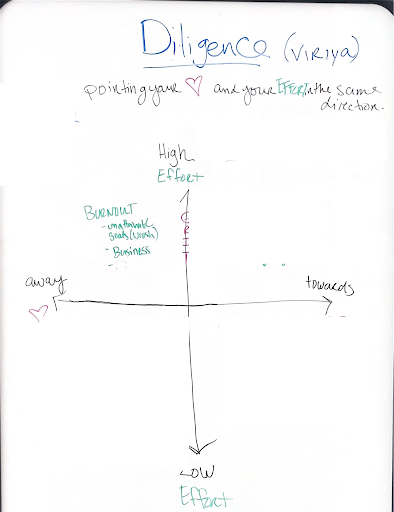 Diligence (VIRIYA)
pointing your ♡ and your EFFORT in the same
direction.
High
Effort
BURNOUT
- unattainable
goals (Wrosh)
- Business
-
GRIT
away
towards
♡
Low
Effort